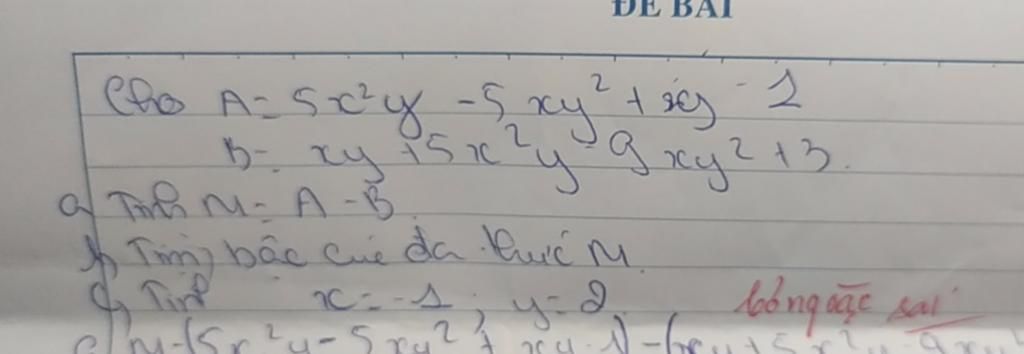 ĐỀ BÀI
Cho A = 5x²y - 5xy² + xy - 1
B = xy + 5x²y - 9xy² + 3.
a, Tính M = A - B
b, Tìm bậc của đa thức M
c, Tính x = -1 ; y = 2
bỏ ngoặc sai
M = (5x²y - 5xy² + xy - 1) - (xy + 5x²y - 9xy²